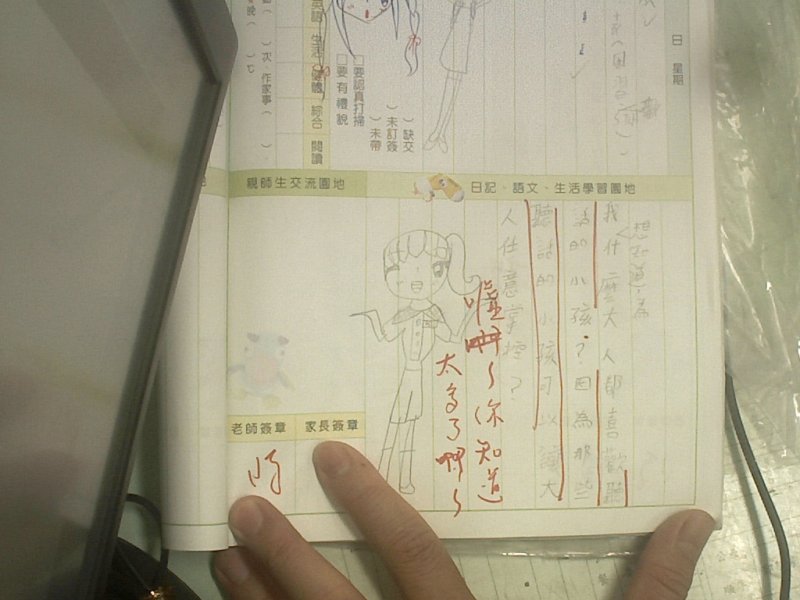 日 星期
（ ）缺交
（ ）未訂簽
（ ）未帶
□要認真打掃
□要有禮貌
生活 健體 綜合 閱讀
）次．作家事（
日記、語文、生活學習園地
親師生交流園地
想知道，為
我什麼大人都喜歡聽
話的小孩？因為那些
聽話的小孩可以讓大
人任意掌控？
噓～你知道
太多了啊～
家長簽章
老師簽章